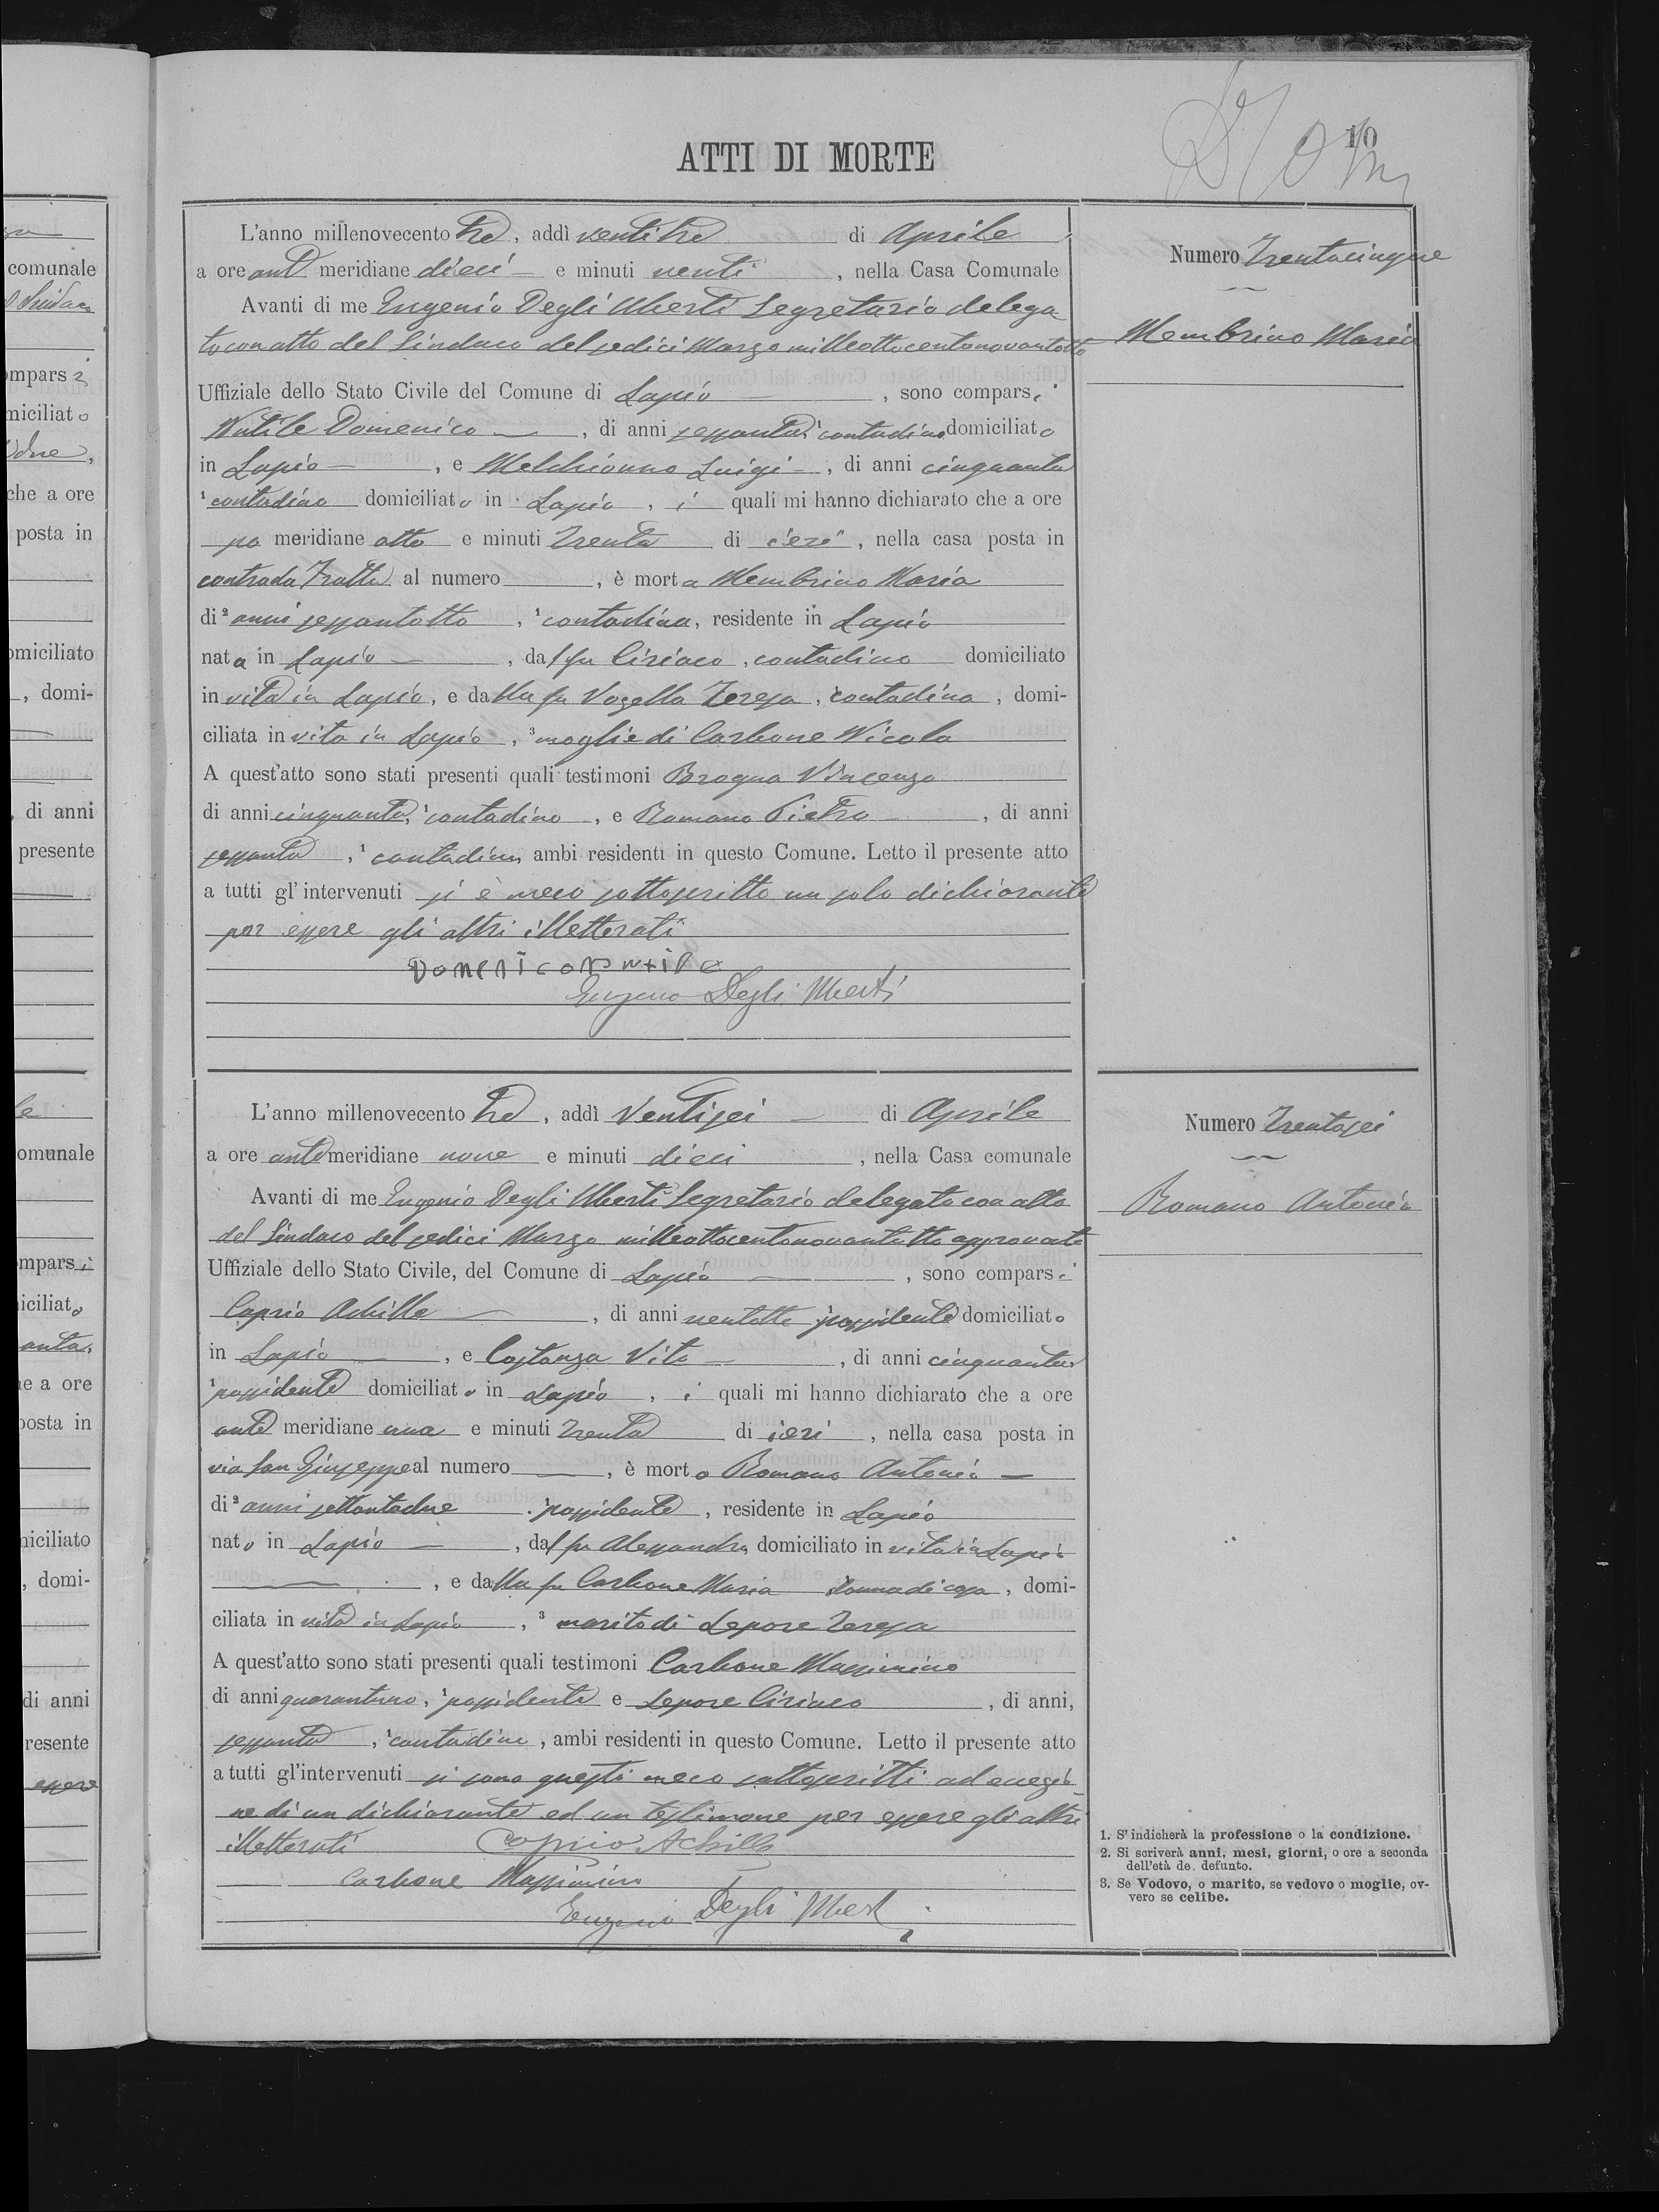 ATTI DI MORTE
10
L'anno millenovecento tre, addì ventitre di Aprile
a ore ant meridiane dieci e minuti venti, nella Casa Comunale
Avanti di me Eugenio Degli Uberti Segretario delega
to con atto del Sindaco del sedici Marzo milleottocentonovantotto
Uffiziale dello Stato Civile del Comune di Lapio, sono comparsi
Nutile Domenico, di anni sessanta, 1 contadino domiciliato
in Lapio, e Melchionno Luigi, di anni cinquanta
1 contadino domiciliato in Lapio, i quali mi hanno dichiarato che a ore
po meridiane otto e minuti trenta di ieri, nella casa posta in
contrada Tratta al numero , è morta Membrino Maria
di 2 anni sessantotto, 1 contadina, residente in Lapio
nata in Lapio, dal fu Ciriaco, contadino domiciliato
in vita in Lapio, e dalla fu Vozella Teresa, contadina, domi-
ciliata in vita in Lapio, 3 moglie di Carbone Nicola
A quest'atto sono stati presenti quali testimoni Brogna Vincenzo
di anni cinquanta, 1 contadino, e Romano Pietro, di anni
sessanta, 1 contadino, ambi residenti in questo Comune. Letto il presente atto
a tutti gl'intervenuti si è meco sottoscritto un solo dichiarante
per essere gli altri illetterati
Domenico Nutile
Eugenio Degli Uberti
Numero Trentacinque
Membrino Maria
L'anno millenovecento tre, addì Ventisei di Aprile
a ore ante meridiane nove e minuti dieci, nella Casa comunale
Avanti di me Eugenio Degli Uberti Segretario delegato con atto
del Sindaco del sedici Marzo milleottocentonovantotto approvato
Uffiziale dello Stato Civile, del Comune di Lapio, sono comparsi
Caprio Achille, di anni ventotto possidente domiciliato
in Lapio, e Costanza Vito, di anni cinquanta
1 possidente domiciliato in Lapio, i quali mi hanno dichiarato che a ore
ante meridiane una e minuti trenta di ieri, nella casa posta in
via San Giuseppe al numero , è morto Romano Antonio
di 2 anni settantadue, possidente, residente in Lapio
nato in Lapio, dal fu Alessandro, domiciliato in vita in Lapio
, e dalla fu Carbone Maria donna di casa, domi-
ciliata in vita in Lapio, 3 marito di Lepore Teresa
A quest'atto sono stati presenti quali testimoni Carbone Massimino
di anni quarantuno, 1 possidente e Lepore Ciriaco, di anni,
sessanta, 1 contadino, ambi residenti in questo Comune. Letto il presente atto
a tutti gl'intervenuti si sono questi meco sottoscritti ad eccezio
ne di un dichiarante ed un testimone per essere gli altri
illetterati Caprio Achille
Carbone Massimino
Eugenio Degli Uberti
Numero Trentasei
Romano Antonio
1. S'indicherà la professione o la condizione.
2. Si scriverà anni, mesi, giorni, o ore a seconda
dell'età de. defunto.
3. Se Vodovo, o marito, se vedovo o moglie, ov-
vero se celibe.